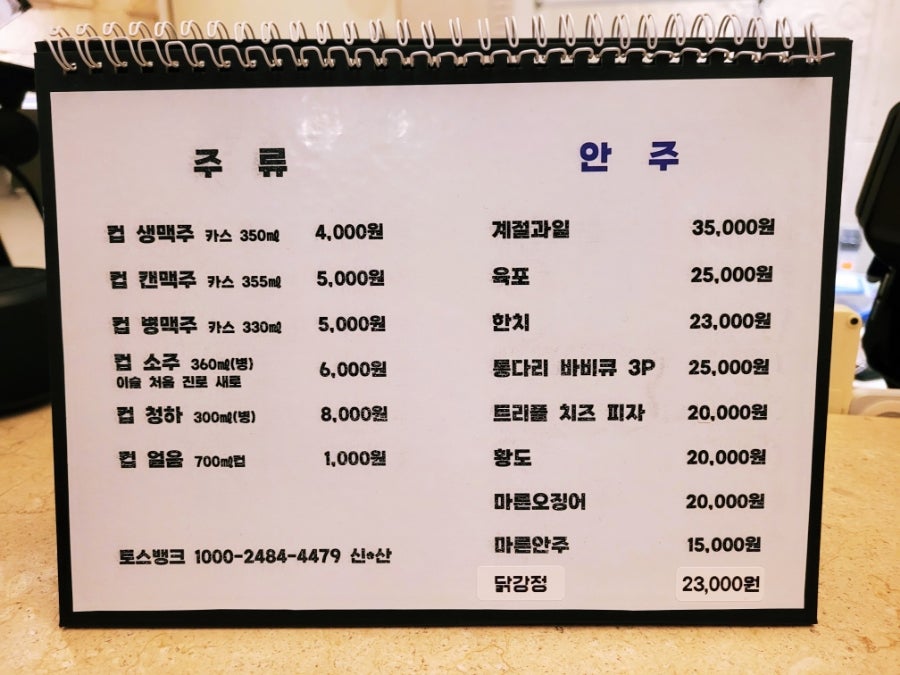 주 류
컵 생맥주 카스 350㎖ 4,000원
컵 캔맥주 카스 355㎖ 5,000원
컵 병맥주 카스 330㎖ 5,000원
컵 소주 360㎖(병) 6,000원
이슬 처음 진로 새로
컵 청하 300㎖(병) 8,000원
컵 얼음 700㎖컵 1,000원
토스뱅크 1000-2484-4479
안 주
계절과일 35,000원
육포 25,000원
한치 23,000원
통다리 바비큐 3P 25,000원
트리플 치즈 피자 20,000원
황도 20,000원
마른오징어 20,000원
마른안주 15,000원
닭강정 23,000원